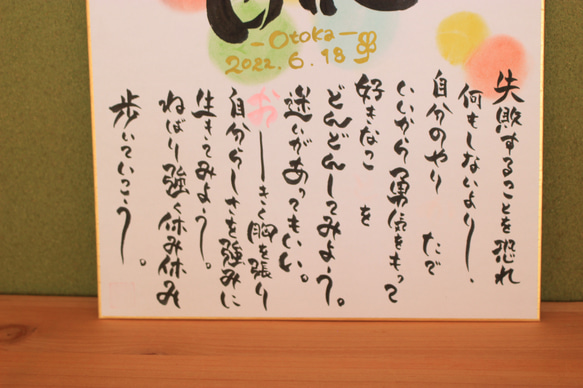 -Otoka-
2022.6.18
失敗することを恐れ
何もしないより、
自分のやり たで
いいから勇気をもって
好きなこ を
どんどんしてみよう。
迷いがあってもいい。
おーきく胸を張り
自分らしさを強みに
生きてみよう。
ねばり強く休み休み
歩いていこう。